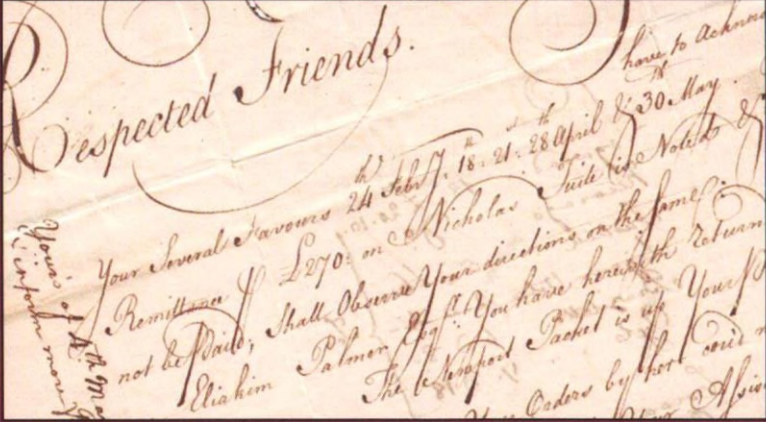 Respected Friends.
have to Acknow
Your Several Favours 24th Febry. 18th. 21st. 28th April & 30th May.
Remittance £270: on Nicholas Tuite is Noted &
not be Paid, Shall Observe Your directions on the Same.
Eliakim Palmer Esqr. You have herewith Return
The Newport Packet is up Your
Your Orders by her
Your Assis
Yours of 4th Ma
inform more